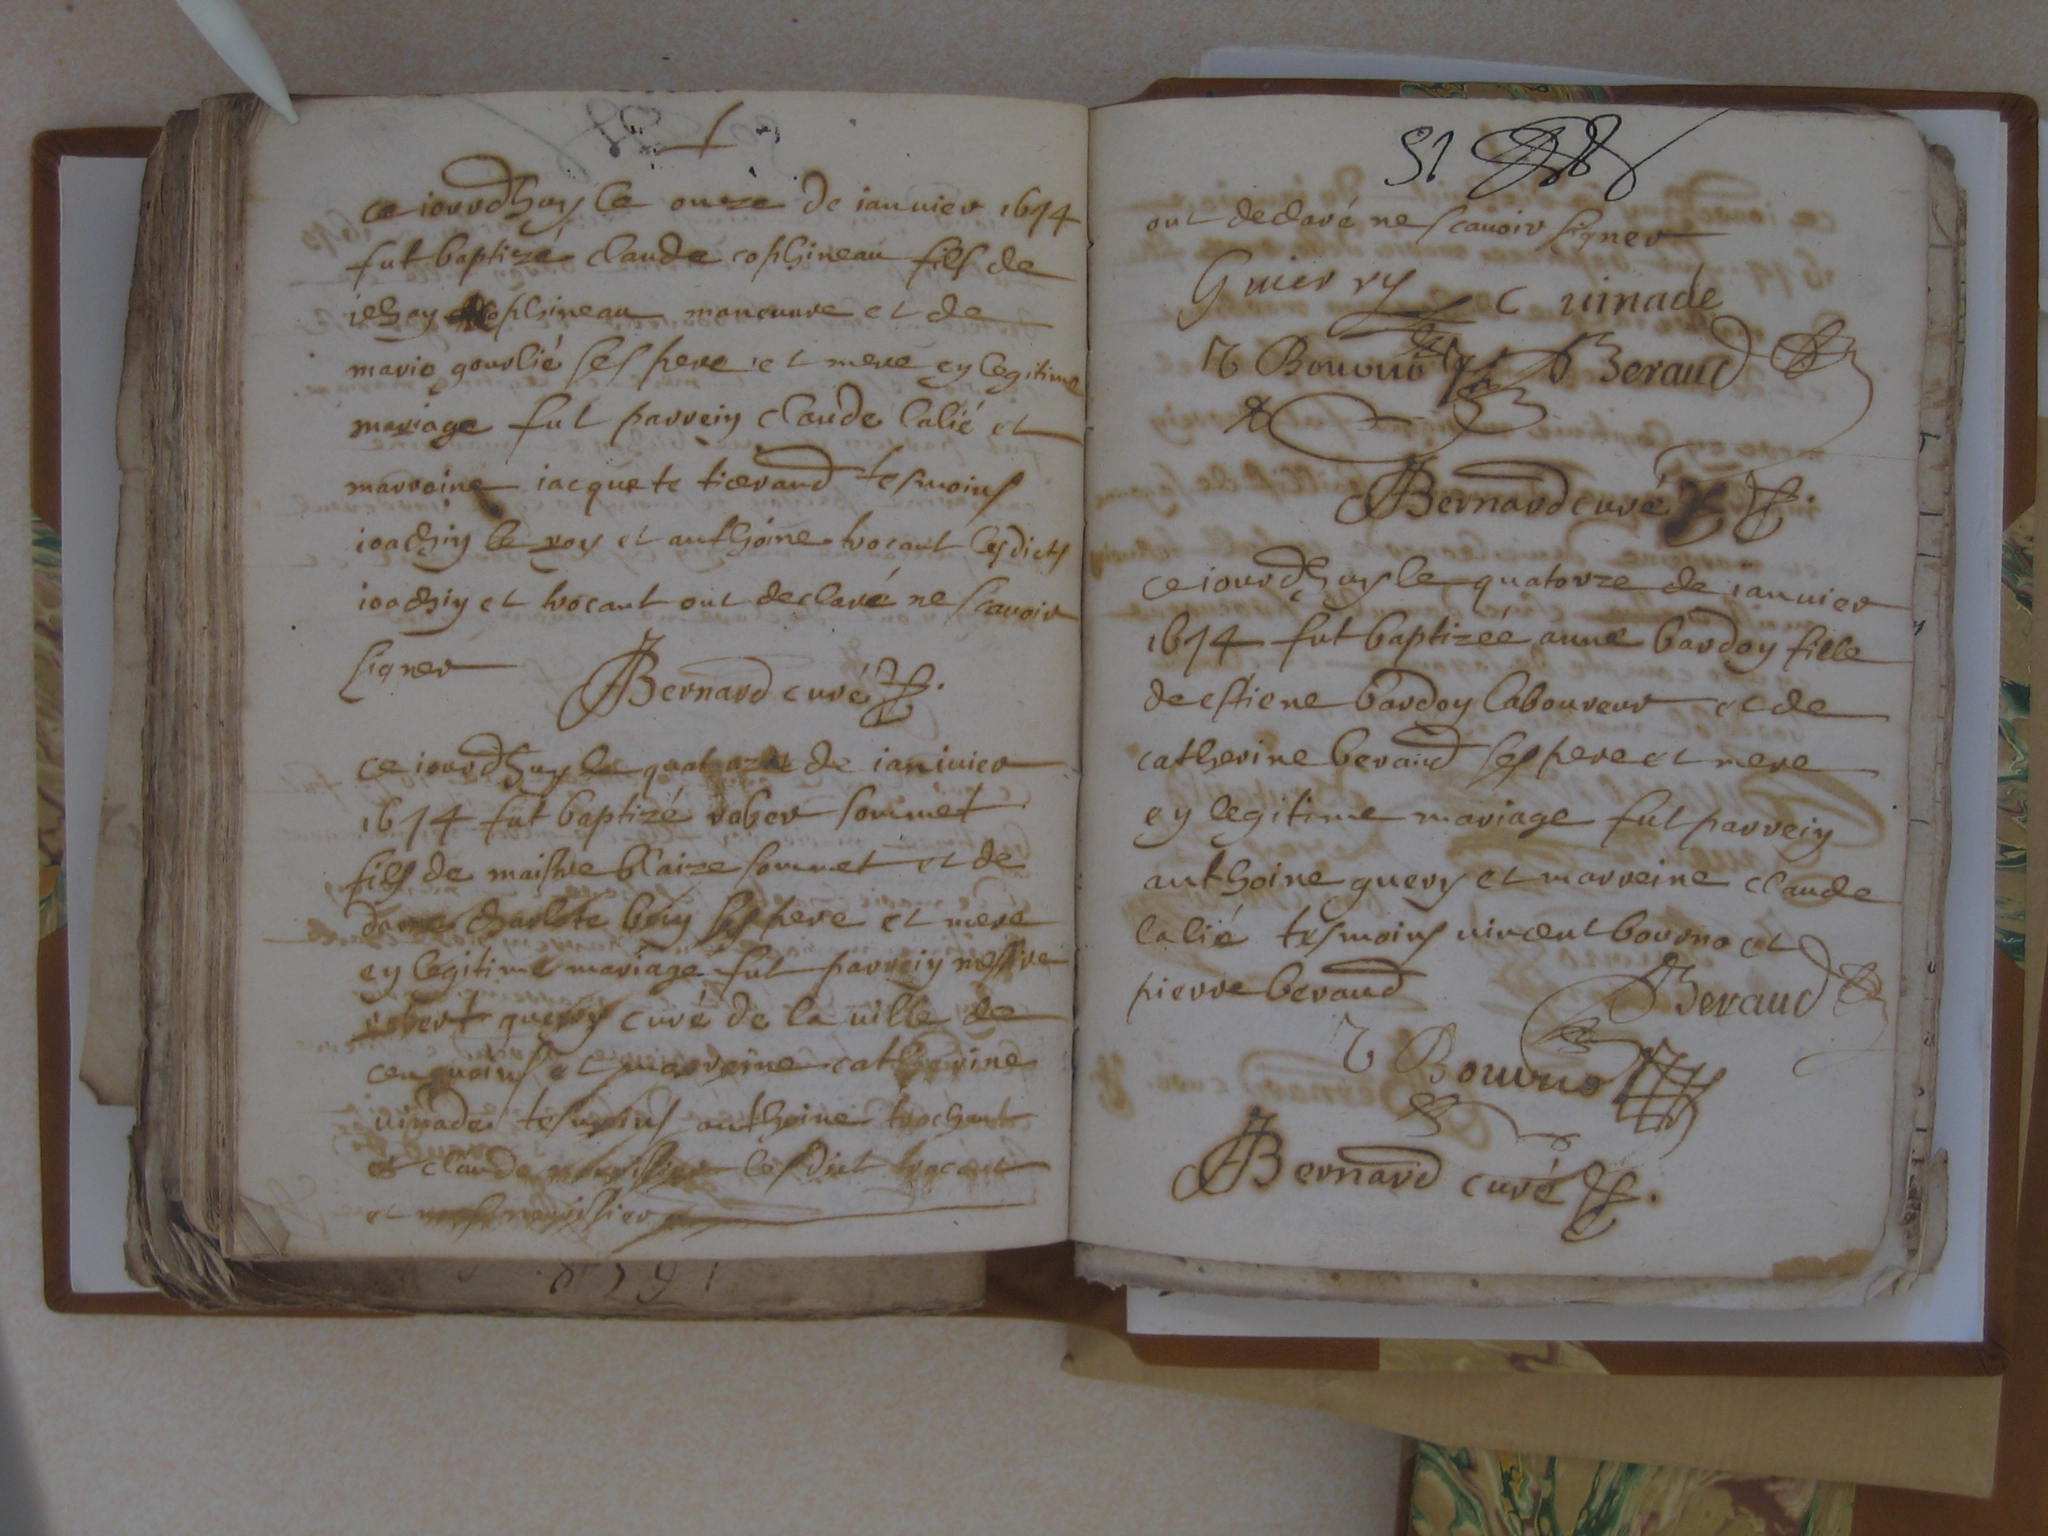 ce iourdhuy le onze de ianuier 1674
fut baptizé claude cophineau fils de
iehay cophineau maneuure et de
marie gourlié ses pere et mere ey legitime
mariage fut parreiy claude lalié et
marroine iacquete ticerand tesmoins
ioachiy le roy et anthoine trocant lesdicts
ioachiy et trocant ont declaré ne scauoir
signer
Bernard curé
ce iourdhuy le quatorze de ianiuier
1674 fut baptizé rober sommet
fils de maistre blaize sommet et de
dame charlote ses pere et mere
ey legitime mariage fut parreiy messire
robert querry curé de la uille de
et marreine catherine
uinade tesmoins anthoine trochant
et claude lesdict trocant
et
51
ont declaré ne scauoir signer
Guierry C uinade
Bouuno Beraud
Bernard curé
ce iourdhuy le quatorze de ianuier
1674 fut baptizéé anne bardoy fille
de estiene bardoy laboureur et de
catherine beraud ses pere et mere
ey legitime mariage fut parreiy
anthoine query et marreine claude
lalié tesmoins uincent bouono et
pierre beraud
Beraud
Bouuno
Bernard curé